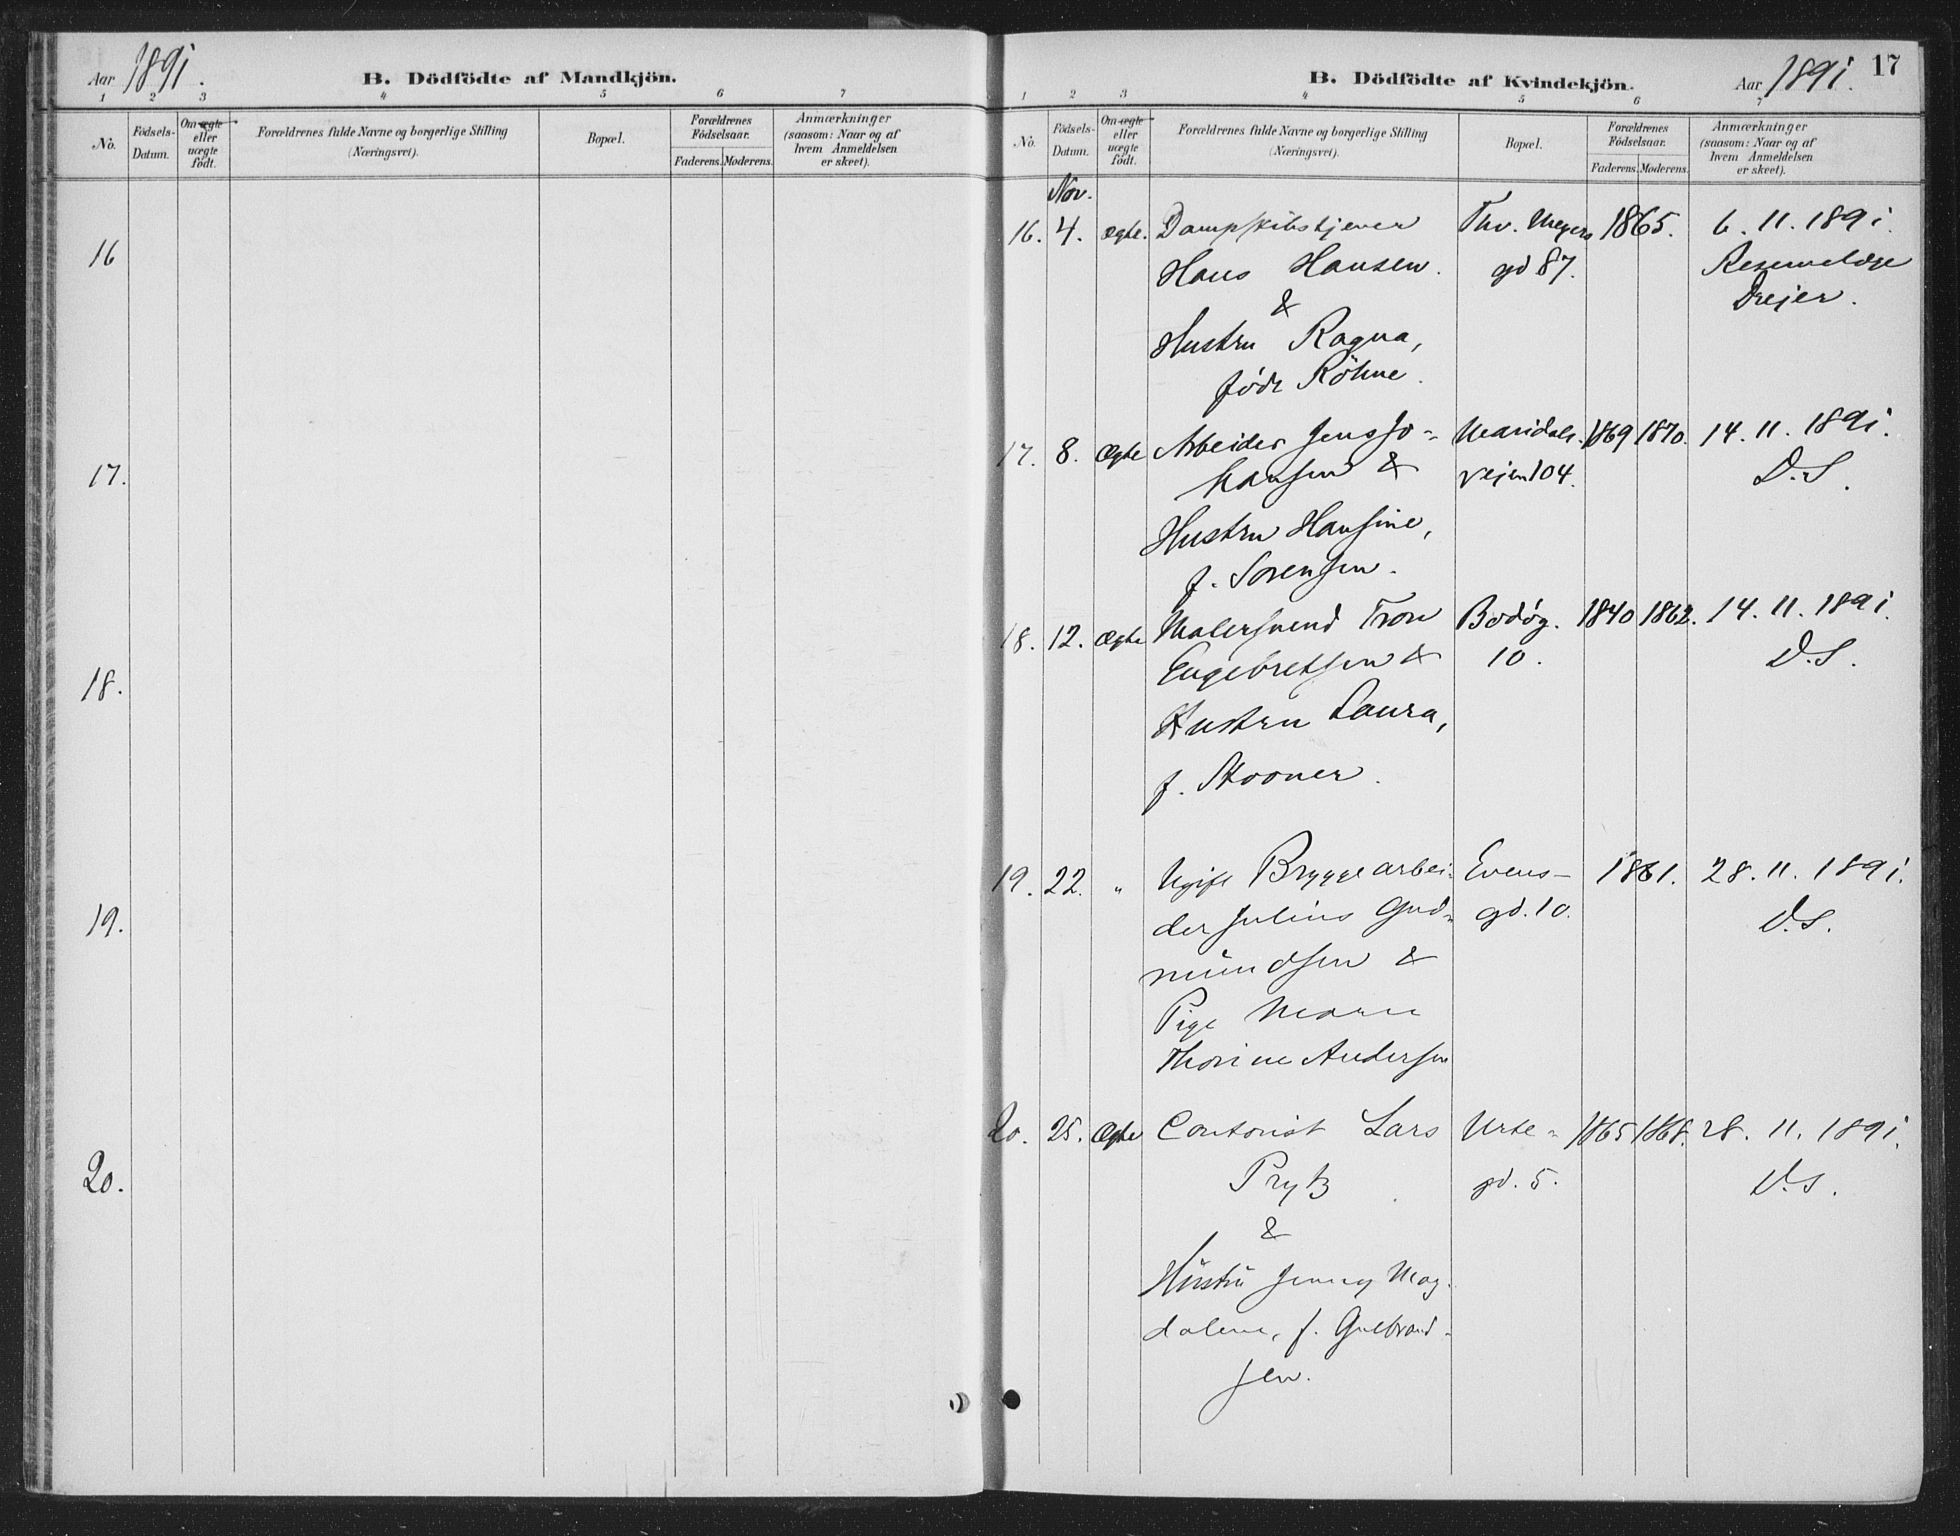 Aar 1891.
B. Dödfödte af Mandkjön.
1 2 3 4 5 6 7
No.
Födsels-
Datum.
Om ægte
eller
uægte
födt.
Forældrenes fulde Navne og borgerlige Stilling
(Næringsvei).
Bopæl.
Forældrenes
Födselsaar.
Faderens. Moderens.
Anmærkninger
(saasom: Naar og af
hvem Anmeldelsen
er skeet).
16
17.
18.
19.
20.
B. Dödfödte af Kvindekjön.
Aar 1891.
17
1 2 3 4 5 6 7
No.
Födsels-
Datum.
Om ægte
eller
uægte
födt.
Forældrenes fulde Navne og borgerlige Stilling
(Næringsvei).
Bopæl.
Forældrenes
Födselsaar.
Faderens. Moderens.
Anmærkninger
(saasom: Naar og af
hvem Anmeldelsen
er skeet).
Nov.
16. 4. ægte. Dampskibstjener Thv. Meyers 1865. 6. 11. 1891.
Hans Hansen. gd 87. Reservelæge
& Drejer.
Hustru Ragna,
født Röhne.
17. 8. Ægte Arbeider Jens Jo- Maridals- 1869 1870. 14. 11. 1891.
hansen & vejen 104. D.S.
Hustru Hansine,
f. Sorensen.
18. 12. Ægte Malersvend Tron Bodøg. 1840 1862. 14. 11. 1891.
Engebretsen & 10. D.S.
Hustru Laura,
f.
19. 22. " Ugift Bryggearbei- Evens- 1861. 28. 11. 1891.
der Julius Gud- gd. 10. D.S.
mundsen &
Pige Maren
Thorine Andersen
20. 25. Ægte Contorist Lars Urte- 1865 1868. 28. 11. 1891.
Prytz gd. 5. D.S.
&
Hustru Jenny Mag-
dalene, f. Gulbrand-
sen.